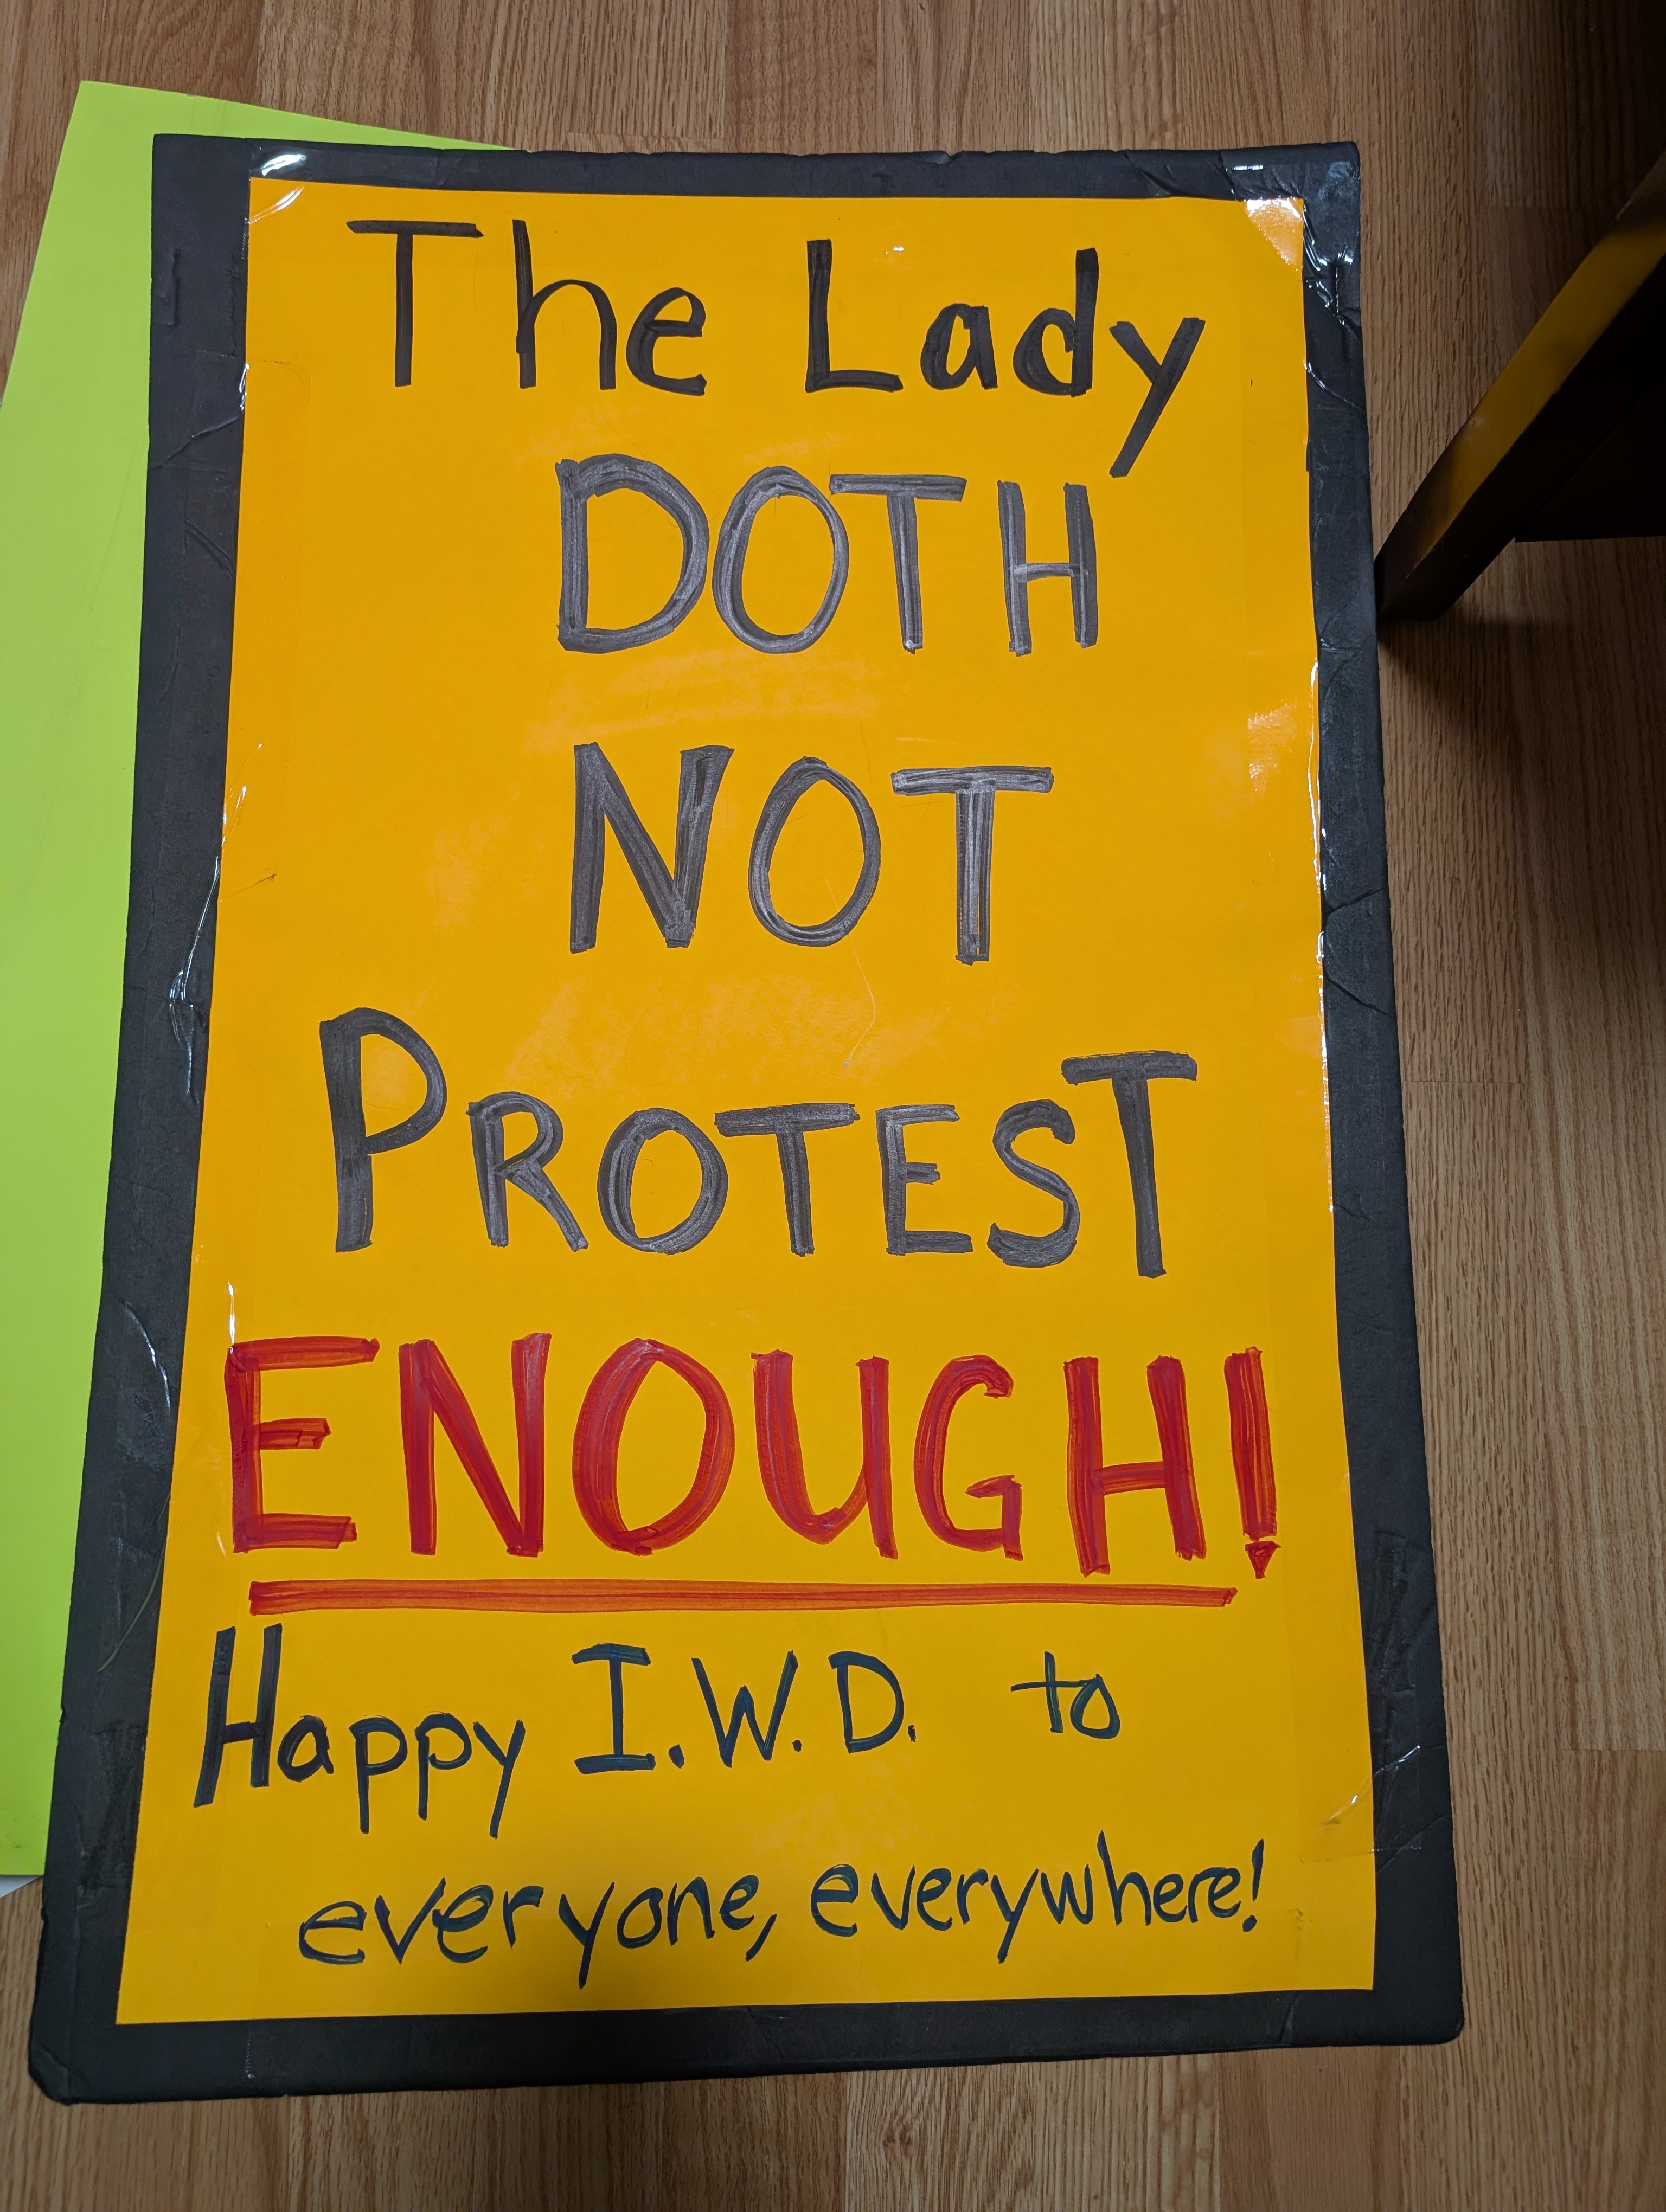 The Lady
DOTH
NOT
PROTEST
ENOUGH!
Happy I.W.D. to
everyone, everywhere!